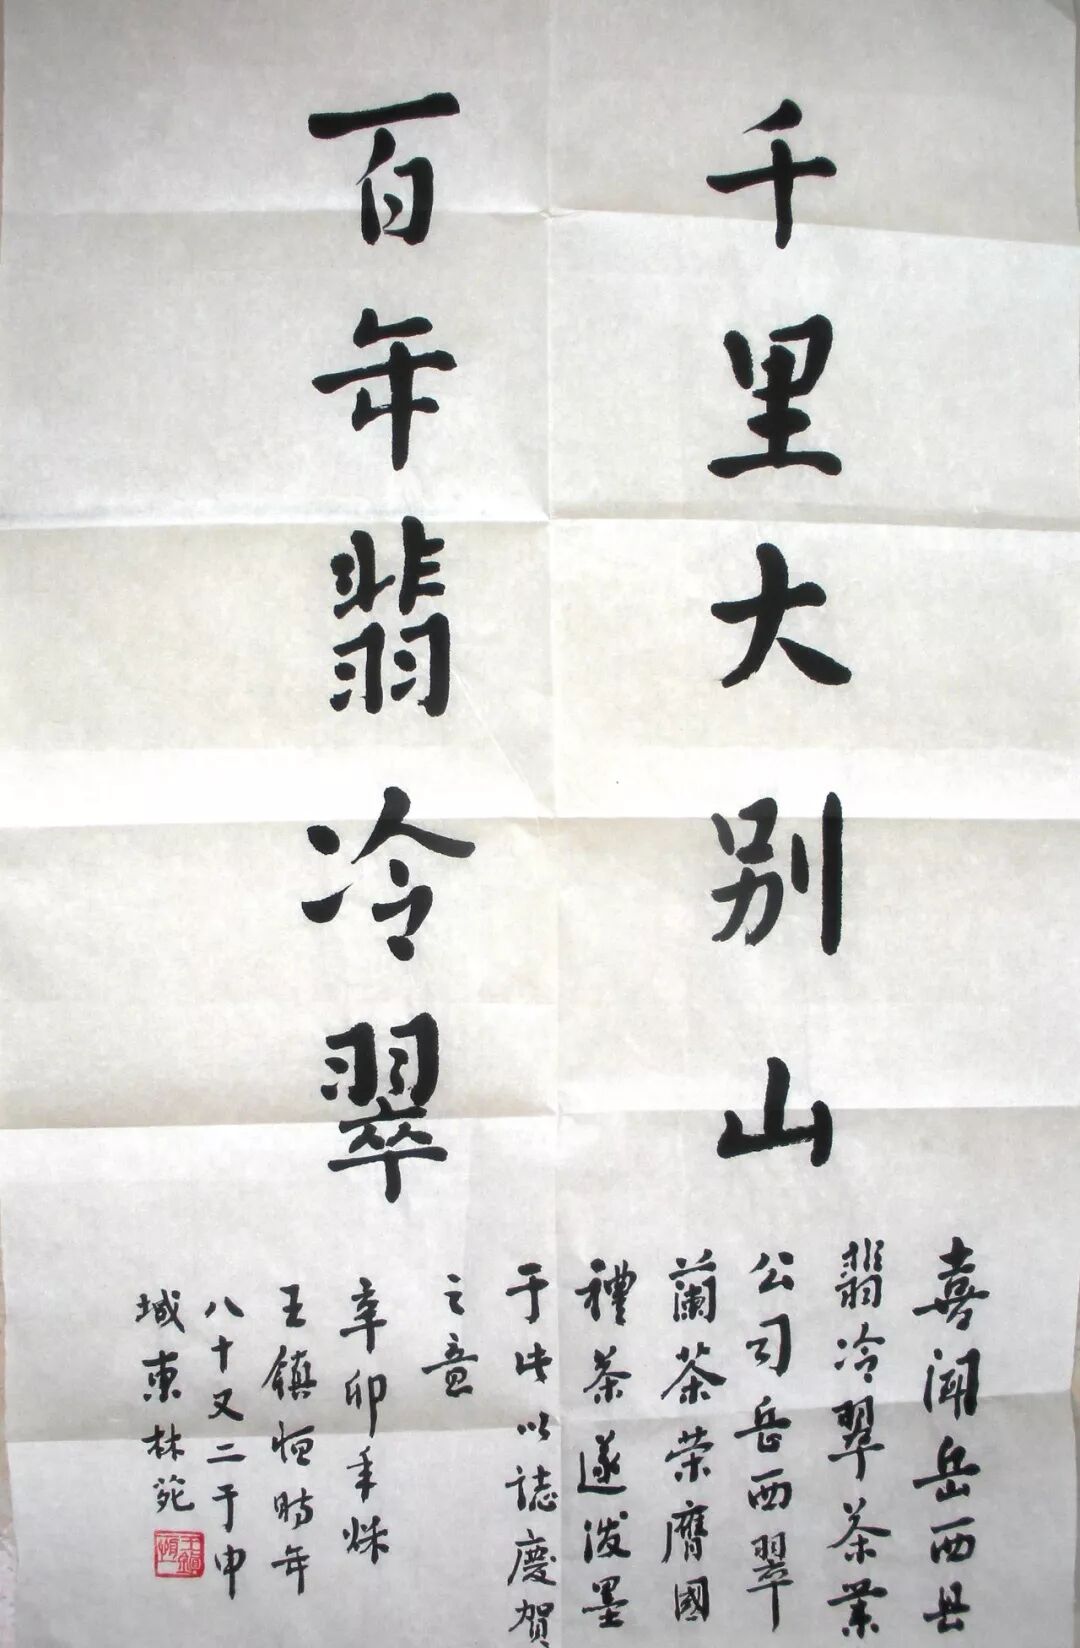 千里大别山
百年翡冷翠
喜闻岳西县
翡冷翠茶業
公司岳西翠
蘭茶荣膺國
禮茶遂泼墨
于此以誌慶賀
之意
辛卯年秌
王鎮恒時年
八十又二于申
城東林苑
王鎮恒